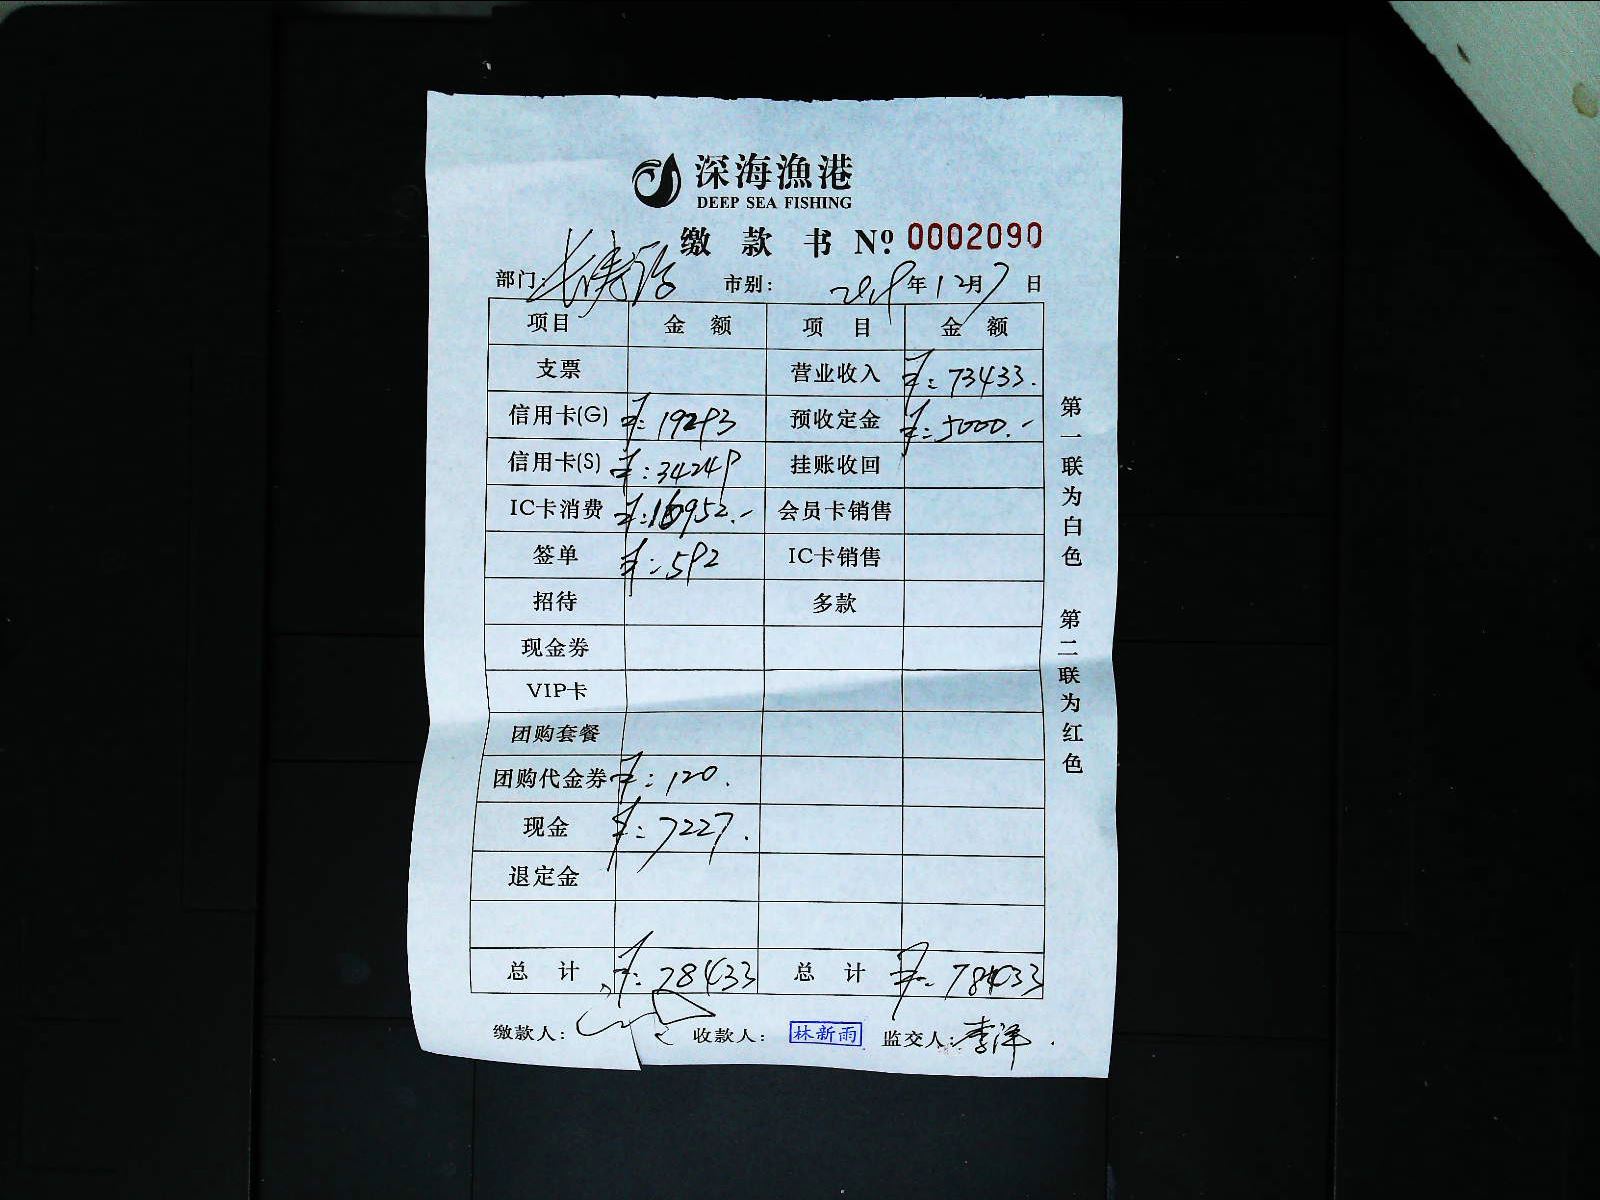 深海漁港
DEEP SEA FISHING
缴款书 Nº 0002090
部门: 市别: 2019年12月7日
项目 金额 项目 金额
支票 营业收入 ¥:73433.
信用卡(G) ¥:19293 预收定金 ¥:5000.-
信用卡(S) ¥:34249 挂账收回
IC卡消费 ¥:16952.- 会员卡销售
签单 ¥:592 IC卡销售
招待 多款
现金券
VIP卡
团购套餐
团购代金券 ¥:120.
现金 ¥:7227.
退定金
总计 ¥:78433 总计 ¥:78433
缴款人: 收款人: 林新雨 监交人: 李洋.
第一联为白色 第二联为红色